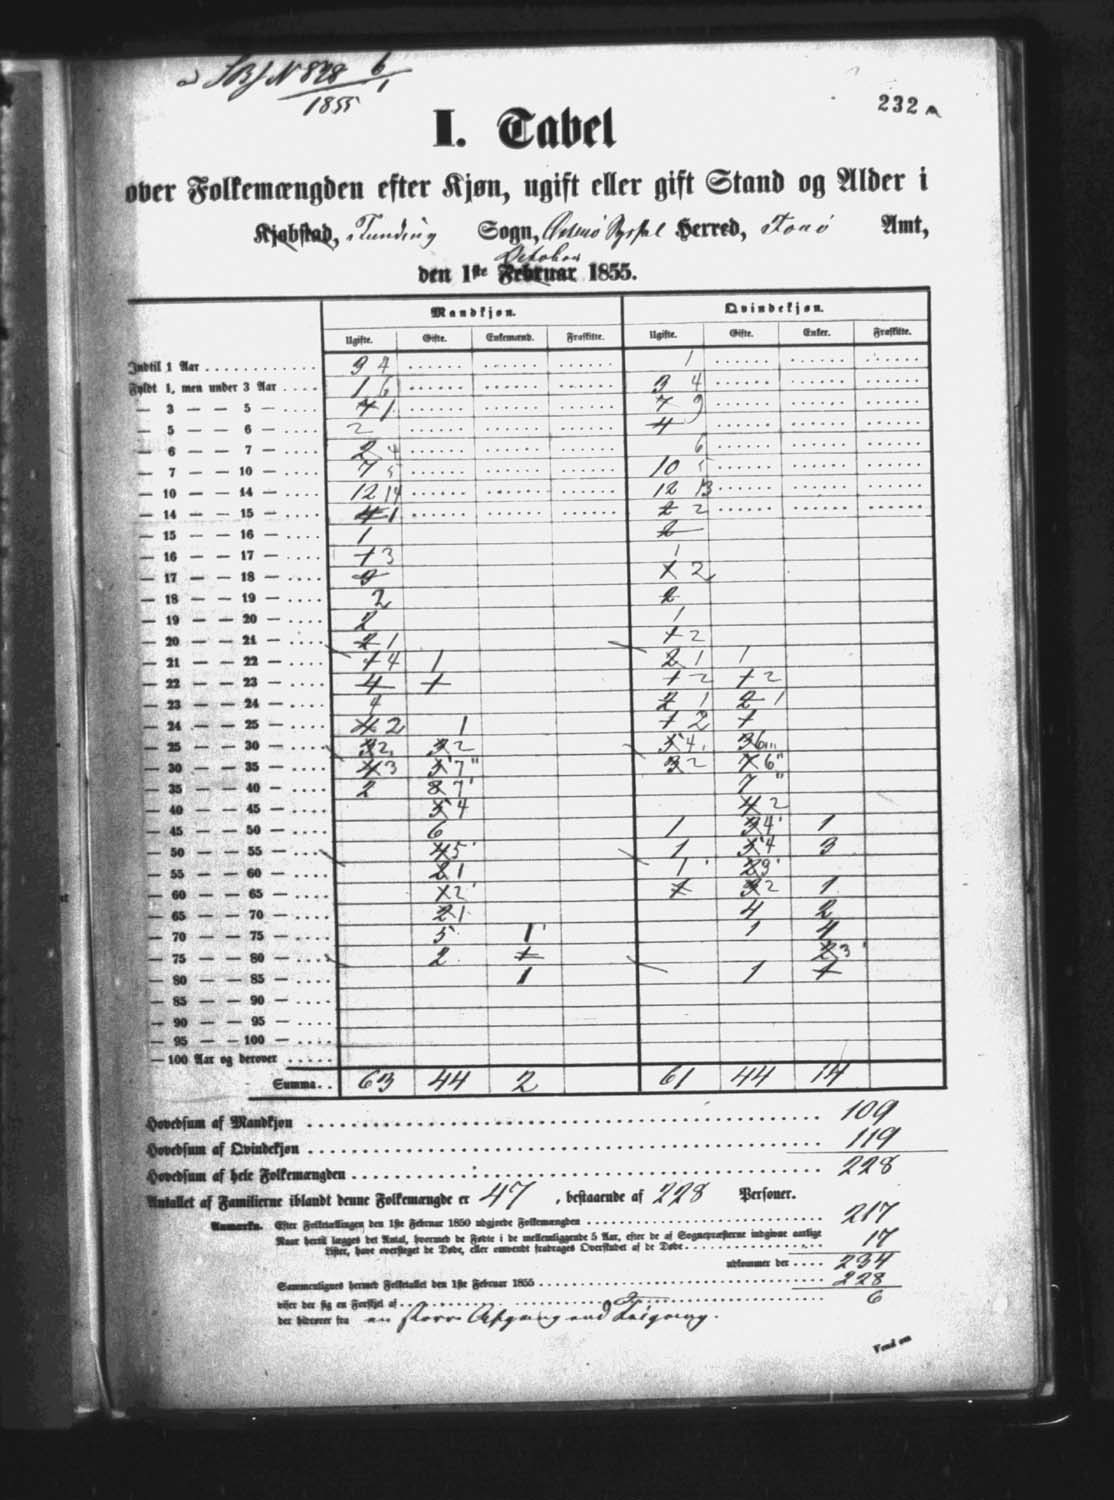 N 828 6/1
1855
232 A
I. Tabel
over Folkemængden efter Kjøn, ugift eller gift Stand og Alder i
Kjøbstad, Funding Sogn, Østerø Syssel Herred, Færø Amt,
October
den 1ste Februar 1855.
Mandkjøn. Qvindekjøn.
Ugifte. Gifte. Enkemænd. Fraskilte. Ugifte. Gifte. Enker. Fraskilte.
Indtil 1 Aar 3 4 1
Fyldt 1, men under 3 Aar 1 6 3 4
— 3 — — 5 — 7 1 7 3
— 5 — — 6 — 2 4
— 6 — — 7 — 2 4 6
— 7 — — 10 — 7 5 10 5
— 10 — — 14 — 12 14 12 13
— 14 — — 15 — 4 1 2 2
— 15 — — 16 — 1 2
— 16 — — 17 — 1 3 1
— 17 — — 18 — 3 1 2
— 18 — — 19 — 2 2
— 19 — — 20 — 2 1
— 20 — — 21 — 2 1 1 2
— 21 — — 22 — 1 4 1 2 1 1
— 22 — — 23 — 4 1 1 2 1 2
— 23 — — 24 — 4 2 1 2 1
— 24 — — 25 — 4 2 1 1 2 1
— 25 — — 30 — 3 2 3 2 5 4 3 6
— 30 — — 35 — 4 3 5 7 3 2 7 6
— 35 — — 40 — 2 8 7 7
— 40 — — 45 — 5 4 4 2
— 45 — — 50 — 6 1 3 4 1
— 50 — — 55 — 4 5 1 5 4 3
— 55 — — 60 — 2 1 1 2 3
— 60 — — 65 — 1 2 1 3 2 1
— 65 — — 70 — 2 1 4 2
— 70 — — 75 — 5 1 1 4
— 75 — — 80 — 2 1 2 3
— 80 — — 85 — 1 1 1
— 85 — — 90 —
— 90 — — 95 —
— 95 — — 100 —
— 100 Aar og derover
Summa. . 63 44 2 61 44 14
Hovedsum af Mandkjøn 109
Hovedsum af Qvindekjøn 119
Hovedsum af hele Folkemængden 228
Antallet af Familierne iblandt denne Folkemængde er 47, bestaaende af 228 Personer.
Anmærkn. Efter Folketællingen den 1ste Februar 1850 udgjorde Folkemængden 217
Naar hertil lægges det Antal, hvormed de Fødte i de mellemliggende 5 Aar, efter de af Sognepræsterne indgivne aarlige
Lister, have oversteget de Døde, eller omvendt fradrages Overskudet af de Døde 17
udkommer der 234
Sammenlignes hermed Folketallet den 1ste Februar 1855 228
viser der sig en Forskjel af 6
der hidrører fra en større Afgang end Tilgang.
Vend om